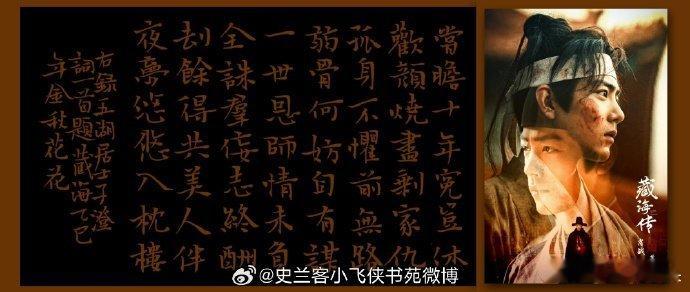 嘗膽十年寃豈休
歡顏燒盡剩家仇
孤身不懼前無路
弱骨何妨自有謀
一世恩師情未負
全誅羣佞志終酬
刦餘得共美人伴
夜夢悠悠入枕樓
右錄五湖居士子澄
詞一首題藏海乙巳
年金秋花花
藏海传
肖战
@史兰客小飞侠书苑微博